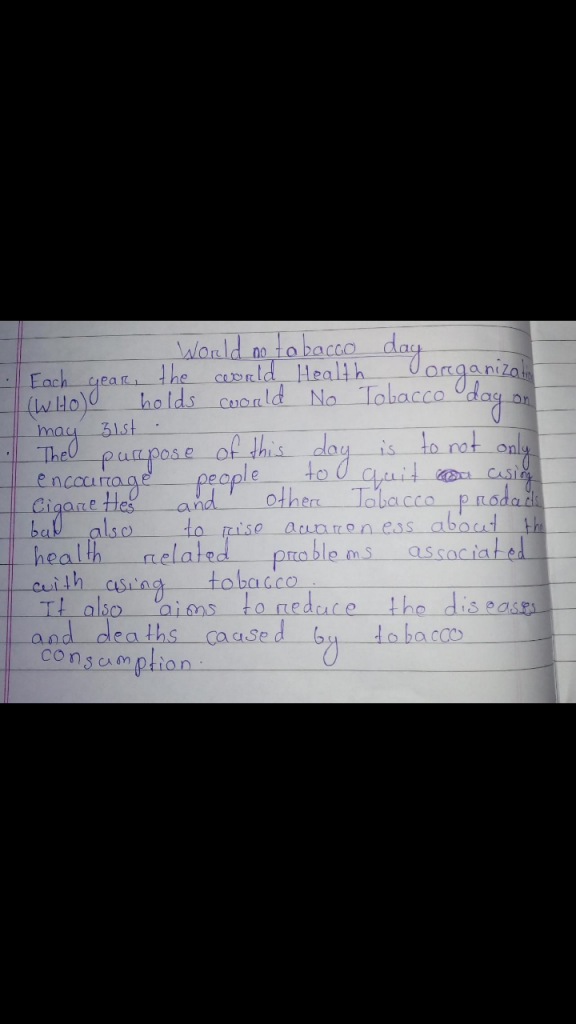 World no tobacco day
Each year, the world Health organizatio
(WHO) holds world No Tobacco day on
may 31st.
The purpose of this day is to not only
encourage people to quit using
Cigarettes and other Tobacco products
but also to rise awareness about the
health related problems associated
with using tobacco.
It also aims to reduce the diseases
and deaths caused by tobacco
consumption.